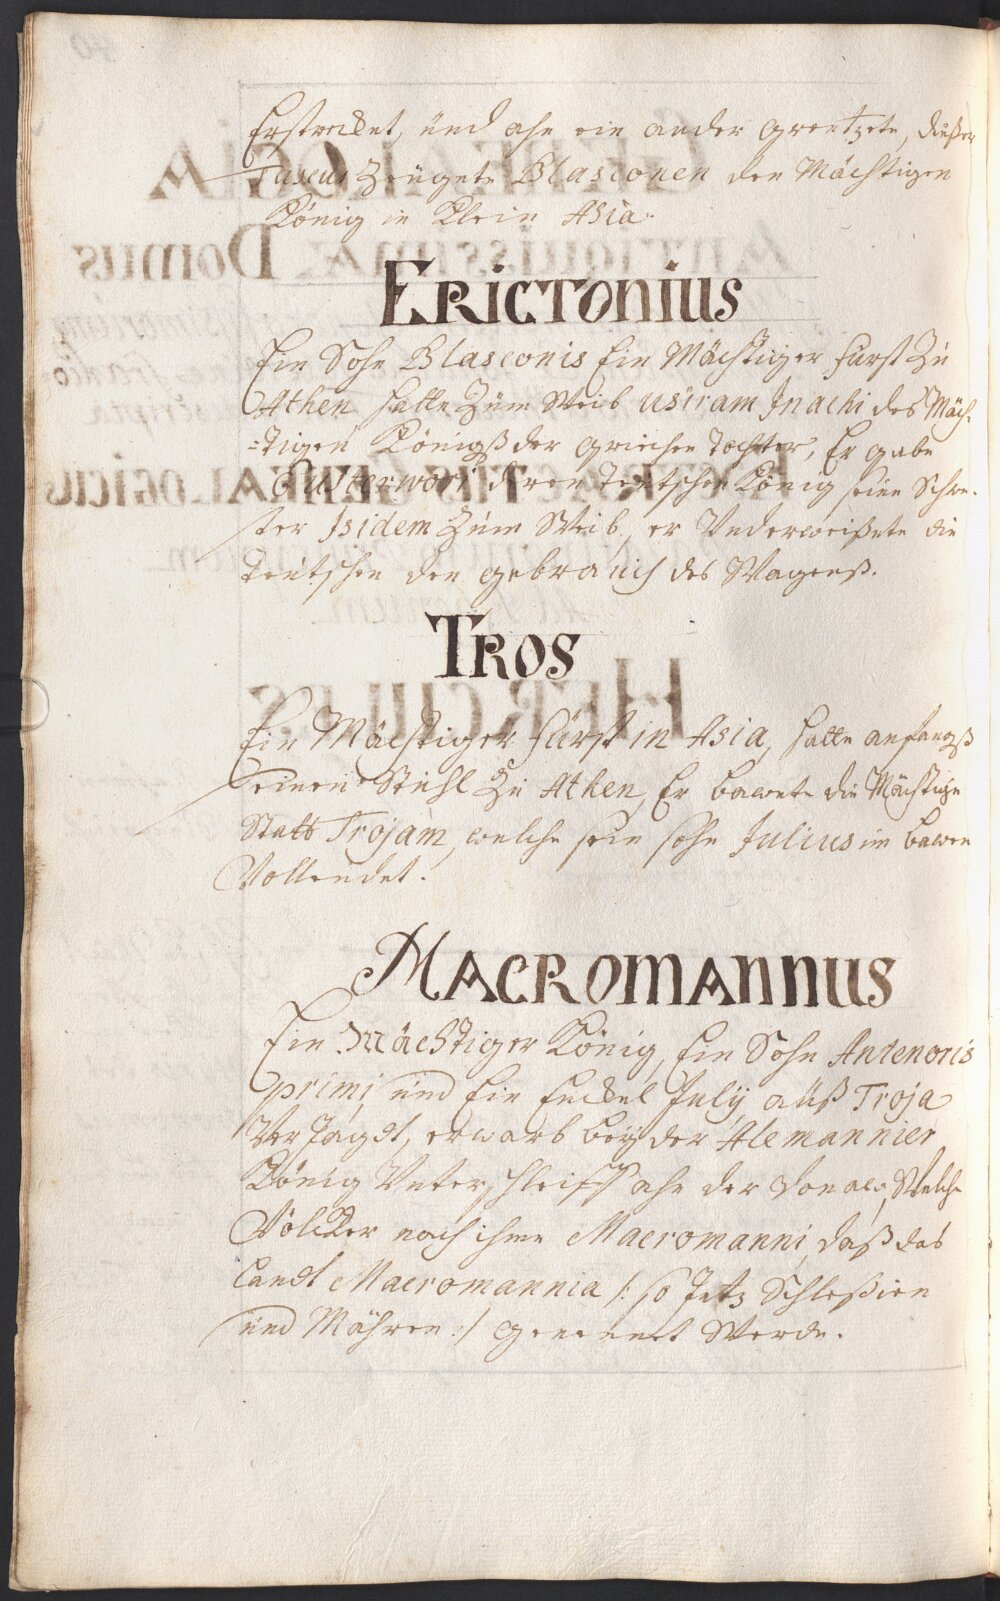 Erstrecket, und ahn ein ander grentzete, dießer
Tuscus Zeugete Blasconen den Mächtigen
König in Klein Asia.
ERICTONIUS
Ein Sohn Blasconis Ein Mächtiger Fürst Zu
Athen hatte Zum Weib usiram Inachi des Mäch-
=tigen Königß der griechen Tochter, Er gabe
deren Teutschen König seine Schwe-
ster Isidem Zum Weib, er Underweißete die
Teutschen den gebrauch des Wagenß.
TROS
Ein Mächtiger Fürst in Asia, hatte anfangß
seinen Stuhl Zu Athen, Er bawete die Mächtige
Statt Trojam, welche sein sohn Julius im bawen
Vollendet.
MACROMANNUS
Ein Mächtiger König, Ein Sohn Antenoris
primi und Ein Enckel Julij auß Troja
Verjagdt, erwarb bey der Alemannier
König Unterschleiff ahn der Donaw, Welche
Völcker nach ihme Macromanni, daß das
Landt Macromannia /: so Jetz Schleßien
und Mähren :/ genennet Werde.